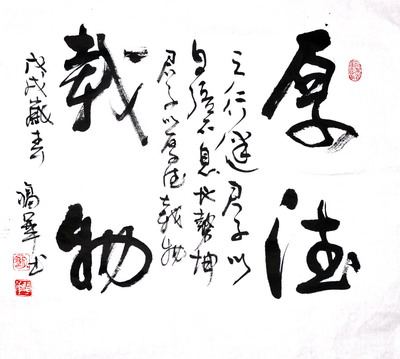 厚德
天行健君子以
自强不息地勢坤
君子以厚德載物
載物
戊戌歲春
華書